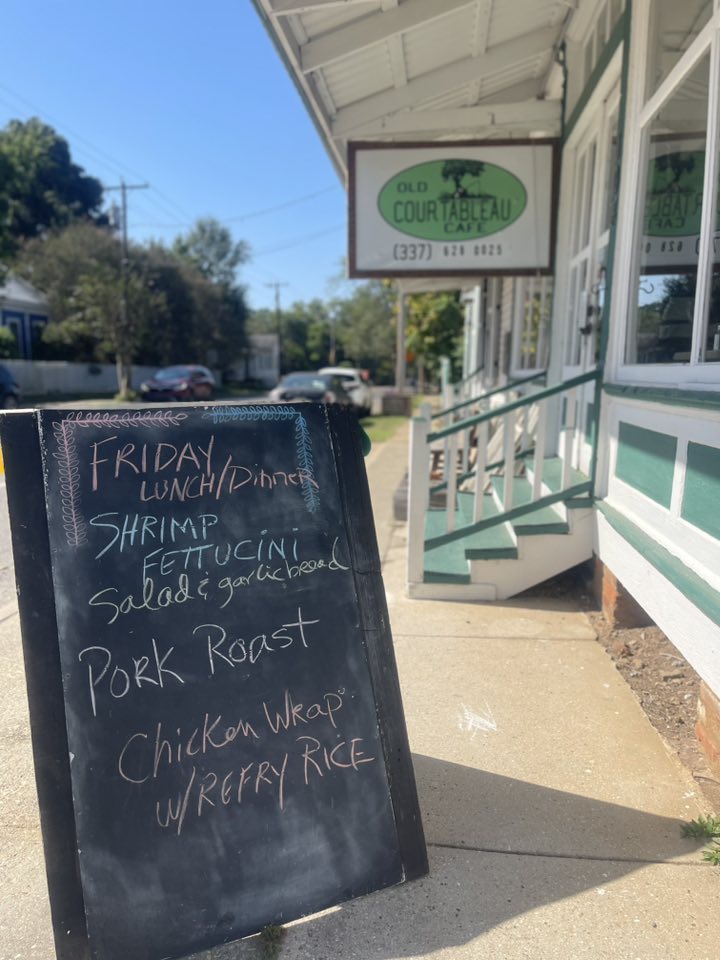 OLD
COURTABLEAU
CAFE
(337) 628 0025
FRIDAY
LUNCH/Dinner
SHRIMP
FETTUCINI
Salad & garlic bread
PORK ROAST
Chicken Wrap
W/REFRY RICE